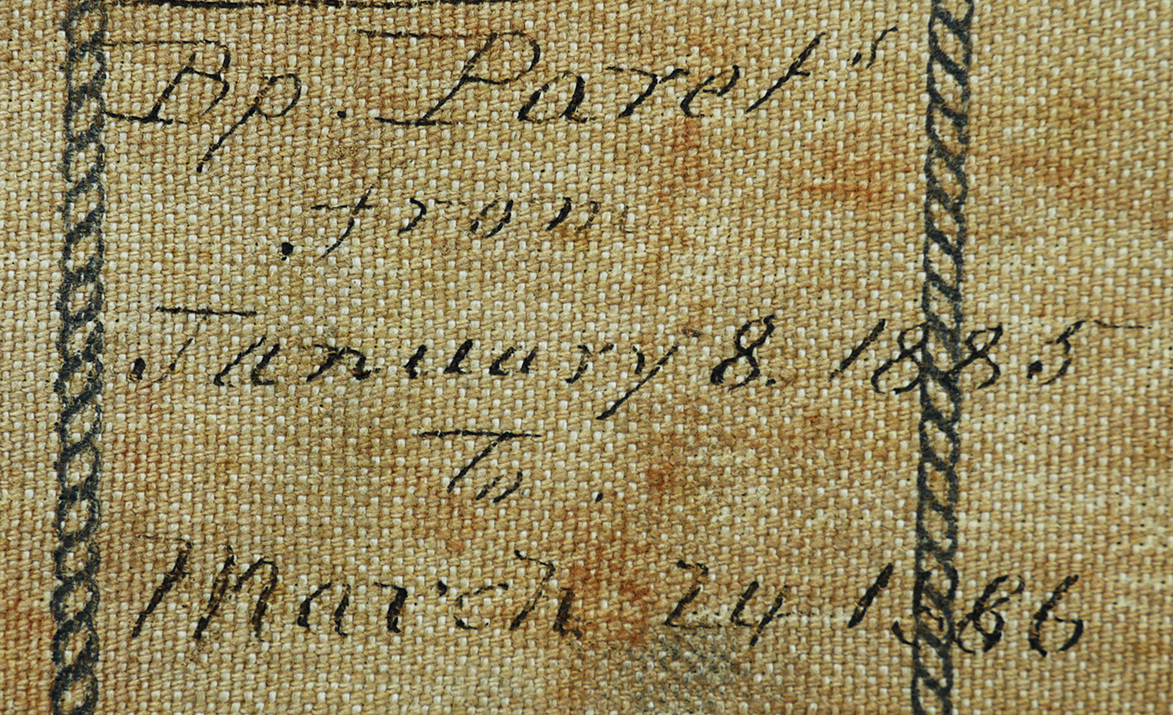 Bp. Paret's
from
January 8. 1885
To.
March 24 1886